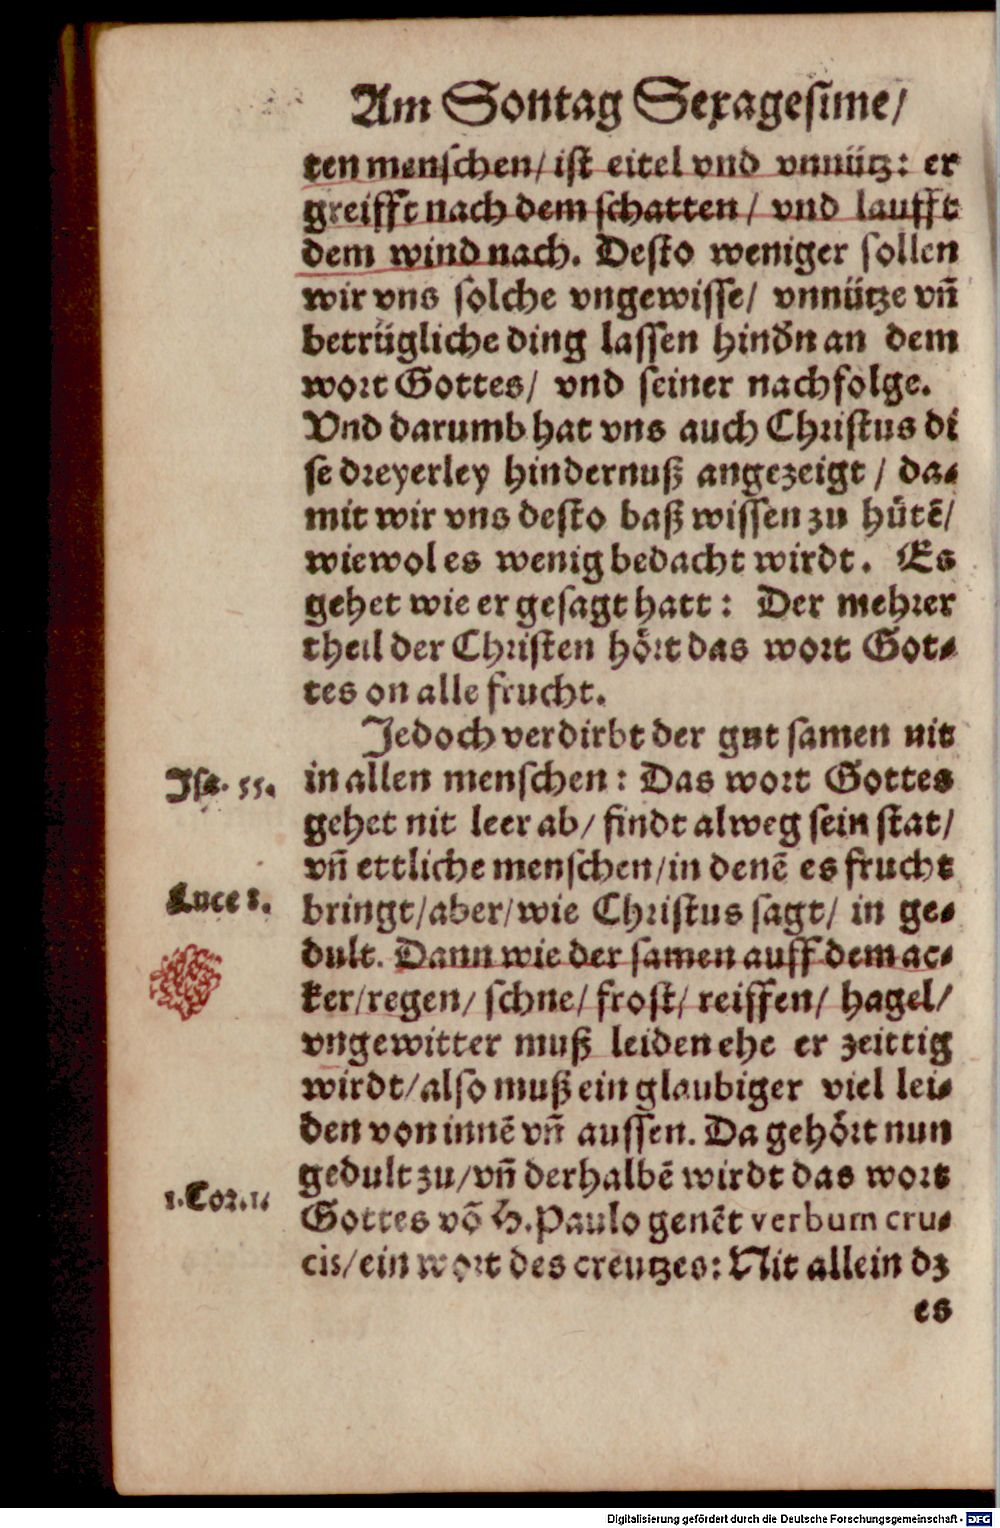 Am Sontag Sexagesime/
ten menschen/ ist eitel vnd vnnütz: er
greifft nach dem schatten/ vnd laufft
dem wind nach. Desto weniger sollen
wir vns solche vngewisse/ vnnütze vñ
betrügliche ding lassen hindn an dem
wort Gottes/ vnd seiner nachfolge.
Vnd darumb hat vns auch Christus di
se dreyerley hindernuß angezeigt/ da⸗
mit wir vns desto baß wissen zu hütē/
wiewol es wenig bedacht wirdt. Es
gehet wie er gesagt hatt: Der mehrer
theil der Christen hört das wort Got⸗
tes on alle frucht.
Jedoch verdirbt der gut samen nit
Isa. 55.
in allen menschen: Das wort Gottes
gehet nit leer ab/ findt alweg sein stat/
vñ ettliche menschen/ in denē es frucht
Luce 8.
bringt/ aber/ wie Christus sagt/ in ge⸗
dult. Dann wie der samen auff dem ac⸗
ker/ regen/ schne/ frost/ reiffen/ hagel/
vngewitter muß leiden ehe er zeittig
wirdt/ also muß ein glaubiger viel lei⸗
den von innē vñ aussen. Da gehört nun
gedult zu/ vñ derhalbē wirdt das wort
1. Cor. 1.
Gottes võ H. Paulo genēt verbum cru⸗
cis/ ein wort des creutzes: Nit allein dz
es
Digitalisierung gefördert durch die Deutsche Forschungsgemeinschaft - DFG